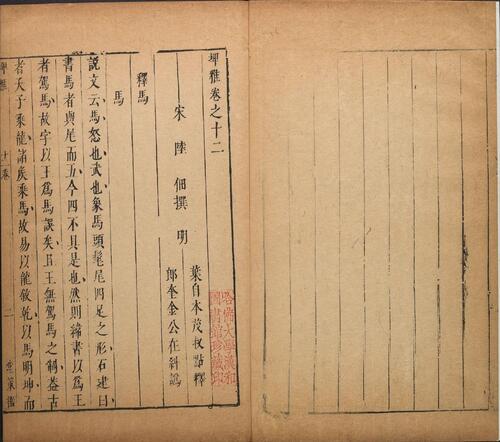 埤雅卷之十二
宋 陸 佃撰 明
葉自本茂叔點釋
郎奎金公在糾譌
釋馬
馬
說文云馬怒也武也象馬頭髦尾四足之形石建曰
書馬者與尾而五今四不具是也然則緯書以為王
者駕馬故字以王為馬誤矣且王無駕馬之制蓋古
者天子乘龍諸矦乘馬故易以龍敘乾以馬明坤而
埤雅
十二卷
哈佛大學漢和
圖書館珍藏印